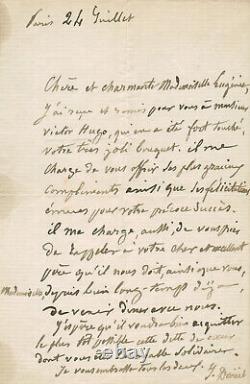 Paris 24 Juillet
Chère et charmante Mademoiselle Eugénie,
J'ai reçu et remis pour vous à monsieur
Victor Hugo, qui en a été fort touché,
votre très joli bouquet. il me
charge de vous offrir ses plus gracieux
compliments ainsi que ses félicitations
pour votre précoce succès.
il me charge, aussi, de vous prier
de rappeler à votre cher et excellent
père qu'il nous doit, ainsi que vous,
Mademoiselle, depuis bien longtemps déjà,
de venir diner avec nous.
J'espère qu'il voudra bien acquitter
le plus tôt possible cette dette de cœur
dont vous êtes solidaire.
Je vous embrasse tous les deux.
J. Drouet